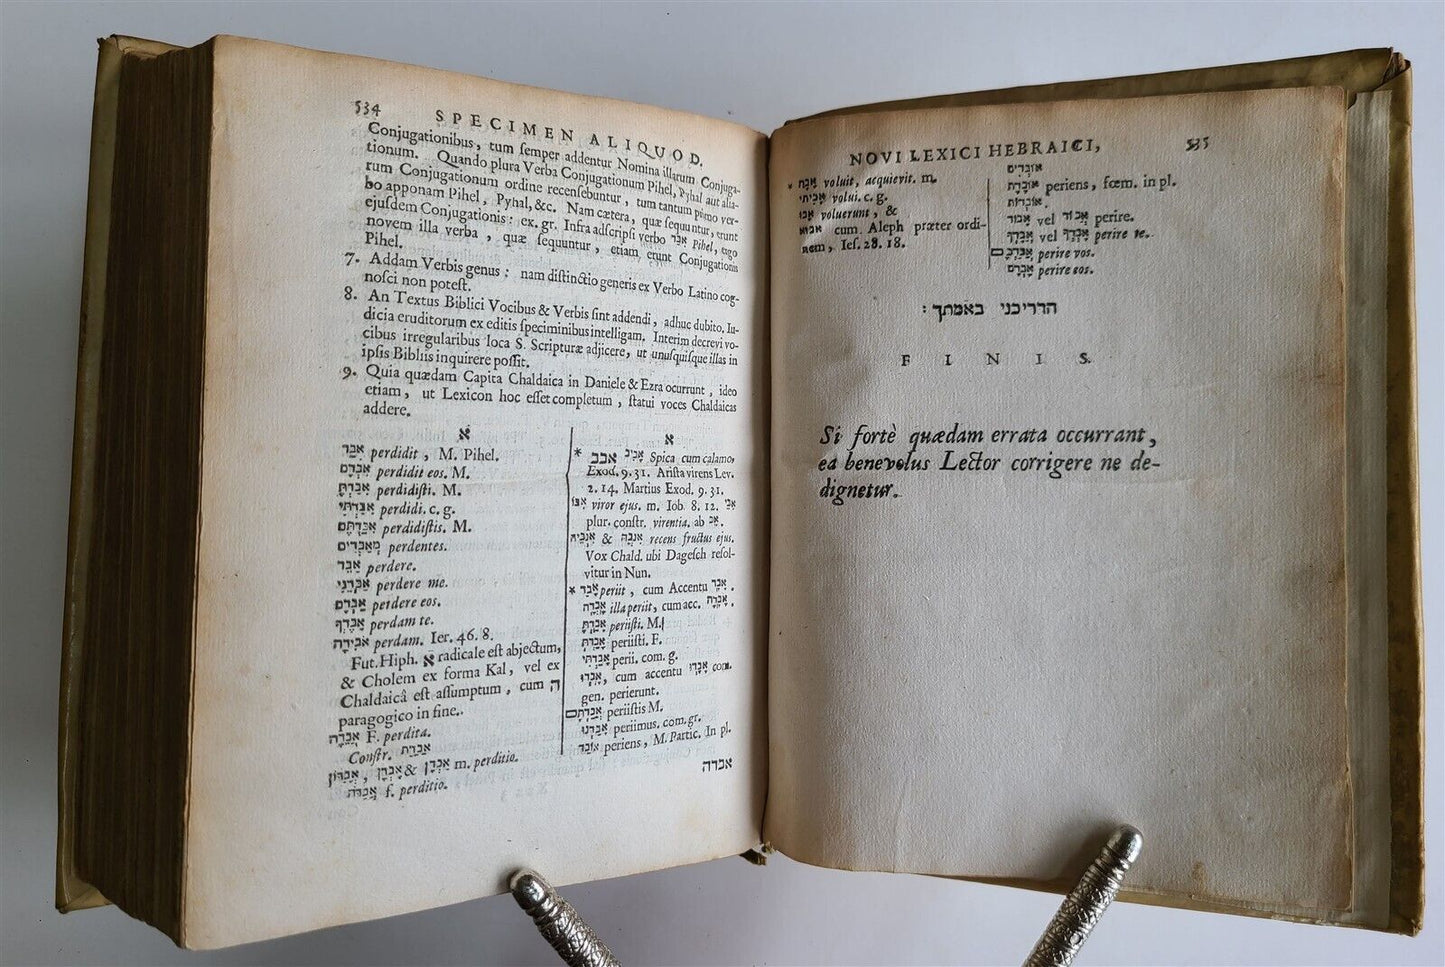 534 SPECIMEN ALIQUOD.
Conjugationibus, tum ſemper addentur Nomina illarum Conjuga-
tionum. Quando plura Verba Conjugationum Pihel, Pyhal aut alia-
rum Conjugationum ordine recenſebuntur, tum tantum primo ver-
bo apponam Pihel, Pyhal, &c. Nam cætera, quæ ſequuntur, erunt
ejuſdem Conjugationis: ex. gr. Infra adſcripſi verbo אבד Pihel, ergo
novem illa verba, quæ ſequuntur, etiam erunt Conjugationis
Pihel.
7. Addam Verbis genus: nam diſtinctio generis ex Verbo Latino cog-
noſci non poteſt.
8. An Textus Biblici Vocibus & Verbis ſint addendi, adhuc dubito. Ju-
dicia eruditorum ex editis ſpeciminibus intelligam. Interim decrevi vo-
cibus irregularibus loca S. Scripturæ adjicere, ut unuſquiſque illas in
ipſis Bibliis inquirere poſſit.
9. Quia quædam Capita Chaldaica in Daniele & Ezra occurrunt, ideo
etiam, ut Lexicon hoc eſſet completum, ſtatui voces Chaldaicas
addere.
א
אִבַּד perdidit, M. Pihel.
אִבְּדָם perdidit eos. M.
אִבַּדְתָּ perdidiſti. M.
אִבַּדְתִּי perdidi. c. g.
אִבַּדְתֶּם perdidiſtis. M.
מְאַבְּדִים perdentes.
אַבֵּד perdere.
אַבְּדֵנִי perdere me.
אַבְּדָם perdere eos.
אַבֶּדְךָ perdam te.
אֹבִידָה perdam. Ier. 46. 8.
Fut. Hiph. א radicale eſt abjectum,
& Cholem ex forma Kal, vel ex
Chaldaicâ eſt aſſumptum, cum ה
paragogico in fine.
אֲבֵדָה F. perdita.
Conſtr. אֲבֵדַת
אֲבַדּוֹן, אָבְדָן & אַבְדָן m. perditio.
אֲבַדֹּה f. perditio.
א
* אבב אָבִיב Spica cum calamo,
Exod. 9. 31. Ariſta virens Lev.
2. 14. Martius Exod. 9. 31.
אִבּוֹ viror ejus. m. Iob. 8. 12. אִבֵּי
plur. conſtr. virentia. ab אֵב.
אִנְבָּהּ & אִנְבֵּיהּ recens fructus ejus.
Vox Chald. ubi Dageſch reſol-
vitur in Nun.
* אָבַד periit, cum Accentu אָבָד
אָבְדָה illa periit, cum acc. אָבָדָה.
אָבַדְתָּ periiſti. M.
אָבַדְתְּ periiſti. F.
אָבַדְתִּי perii. com. g.
אָבְדוּ, cum accentu אָבָדוּ com.
gen. perierunt.
אֲבַדְתֶּם periiſtis M.
אָבַדְנוּ periimus. com. gr.
אוֹבֵד periens, M. Partic. In pl.
אבדה
NOVI LEXICI HEBRAICI, 535
* אָבָה voluit, acquievit. m.
אָבִיתִי volui. c. g.
אָבוּ voluerunt, &
אבוא cum. Aleph præter ordi-
nem, Ieſ. 28. 18.
אוֹבְדִים
אוֹבֶדֶת periens, fœm. in pl.
אוֹבְדוֹת.
אָבוֹד vel אֲבוֹד perire.
אֲבָדְךָ vel אֲבָדֶךָ perire te.
אֲבָדְכֶם perire vos.
אָבְדָם perire eos.
הדריכני באמתך:
FINIS.
Si fortè quædam errata occurrant,
ea benevolus Lector corrigere ne de-
dignetur.